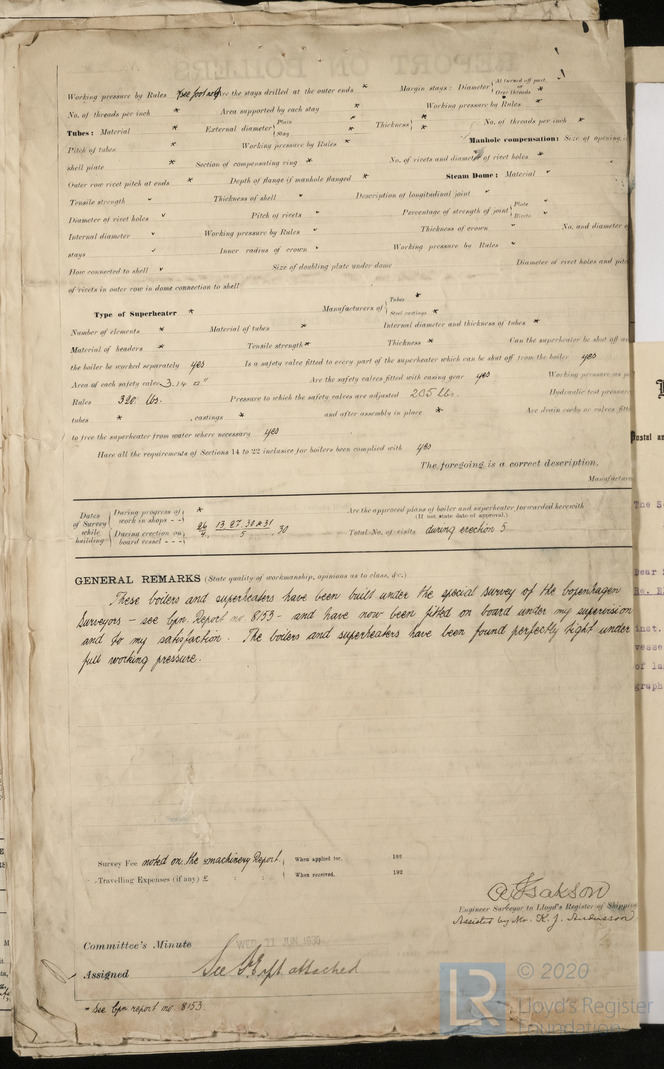 Working pressure by Rules (see foot note) Are the stays drilled at the outer ends * Margin stays: Diameter { At turned off part, or Over threads *
No. of threads per inch * Area supported by each stay * Working pressure by Rules *
Tubes: Material * External diameter { Plain * Stay * Thickness { * * No. of threads per inch *
Pitch of tubes * Working pressure by Rules * Manhole compensation: Size of opening
shell plate * Section of compensating ring * No. of rivets and diameter of rivet holes *
Outer row rivet pitch at ends * Depth of flange if manhole flanged * Steam Dome: Material ✓
Tensile strength ✓ Thickness of shell ✓ Description of longitudinal joint ✓
Diameter of rivet holes ✓ Pitch of rivets ✓ Percentage of strength of joint { Plate ✓ Rivets ✓
Internal diameter ✓ Working pressure by Rules ✓ Thickness of crown ✓ No. and diameter of
stays ✓ Inner radius of crown ✓ Working pressure by Rules ✓
How connected to shell ✓ Size of doubling plate under dome Diameter of rivet holes and pitch
of rivets in outer row in dome connection to shell
Type of Superheater * Manufacturers of { Tubes * Steel castings *
Number of elements * Material of tubes * Internal diameter and thickness of tubes *
Material of headers * Tensile strength * Thickness * Can the superheater be shut off and
the boiler be worked separately yes Is a safety valve fitted to every part of the superheater which can be shut off from the boiler yes
Area of each safety valve 3.14 □" Are the safety valves fitted with easing gear yes Working pressure as per
Rules 320 lbs. Pressure to which the safety valves are adjusted 205 lbs. Hydraulic test pressure
tubes * , castings * and after assembly in place * Are drain cocks or valves fitted
to free the superheater from water where necessary yes
Have all the requirements of Sections 14 to 22 inclusive for boilers been complied with yes
The foregoing is a correct description,
Manufacturer
Dates of Survey while building { During progress of work in shops - - } *
{ During erection on board vessel - - - } 26/4, 13.27.30 & 31/5 .30
Are the approved plans of boiler and superheater forwarded herewith
(If not state date of approval.)
Total No. of visits during erection 5
GENERAL REMARKS (State quality of workmanship, opinions as to class, &c.)
These boilers and superheaters have been built under the special survey of the Copenhagen
Surveyors - see Cpn. Report no. 8153 - and have now been fitted on board under my supervision
and to my satisfaction. The boilers and superheaters have been found perfectly tight under
full working pressure.
Survey Fee noted on the machinery Report { When applied for, 192
Travelling Expenses (if any) £ : : { When received, 192
Engineer Surveyor to Lloyd's Register of Shipping
Assisted by Mr. K. J.
Committee's Minute WED. 11 JUN 1930
Assigned See F.E. rpt. attached
* See Cpn report no. 8153.
LR © 2020
Lloyd's Register
Foundation